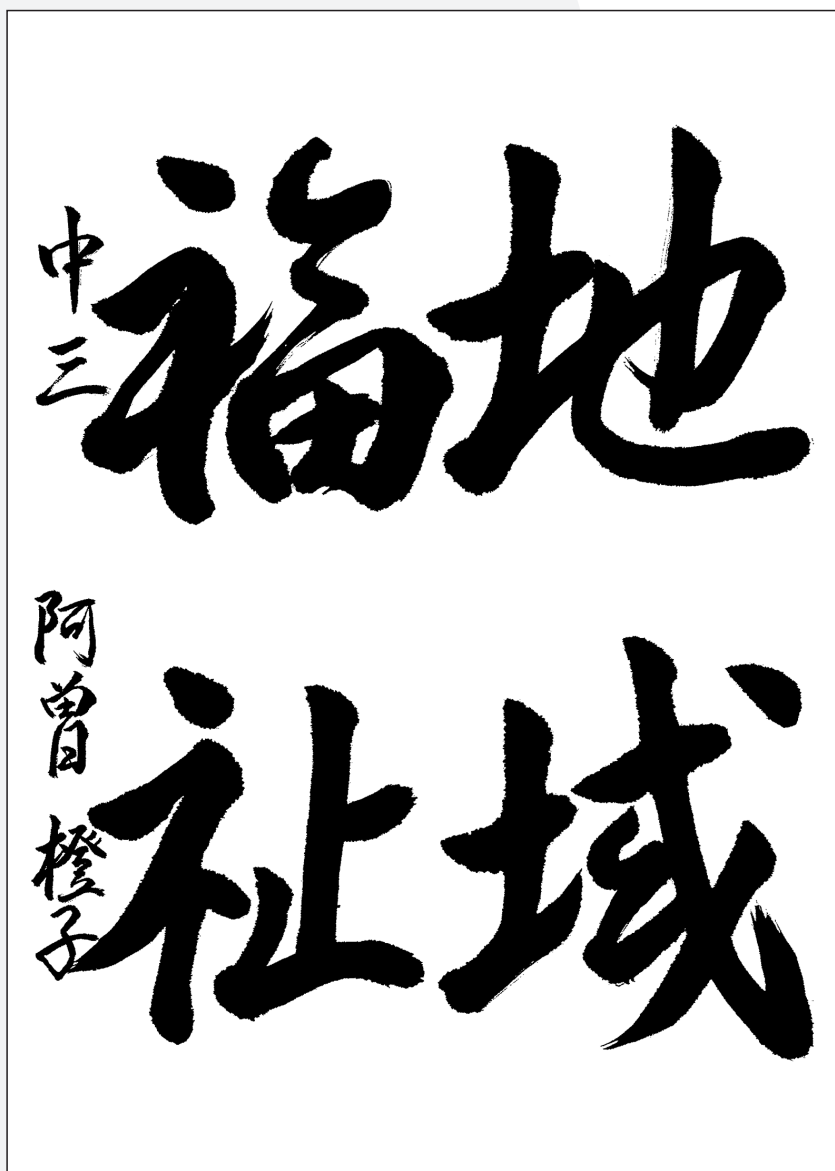 地域
福祉
中三 阿曽 橙子